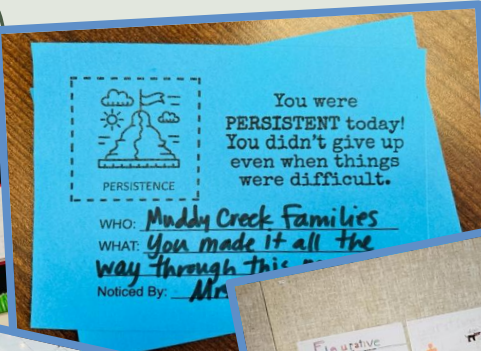 You were
PERSISTENT today!
You didn't give up
even when things
were difficult.
PERSISTENCE
WHO: Muddy Creek Families
WHAT: You made it all the
way through this
Noticed By:
Figurative